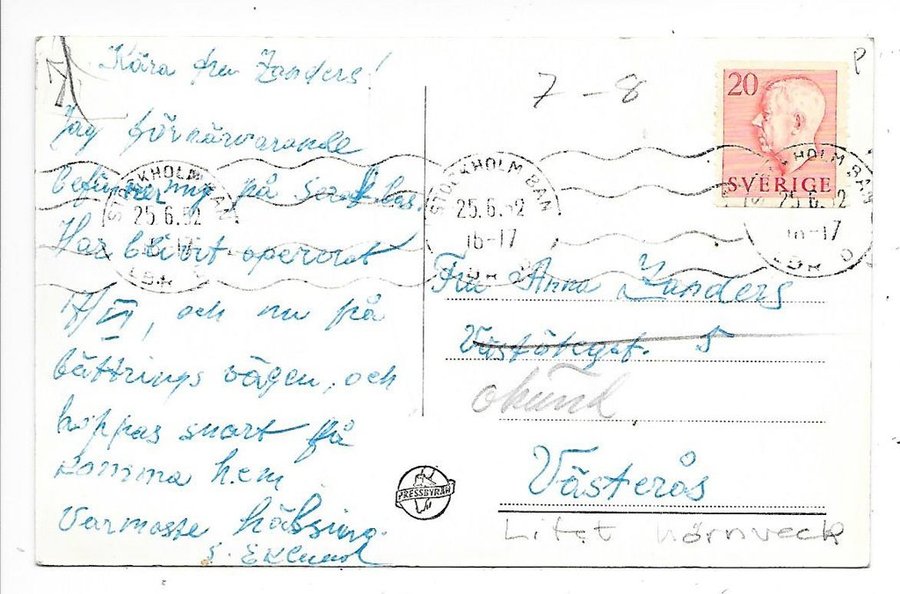 Kära fru Zanders!
Jag förnärvarande
befinner mig på
Har blivit opererat
17/VI, och nu på
bättrings vägen, och
hoppas snart få
komma hem
Varmaste hälsning.
S. Eklund
7-8
P
20
SVERIGE
STOCKHOLM BAN
25.6.52
16-17
STOCKHOLM BAN
25.6.52
16-17
STOCKHOLM BAN
25.6.52
16-17
Fru Anna Zanders
Västötegat. 5
okänd
Västerås
PRESSBYRÅN
Litet hörnveck